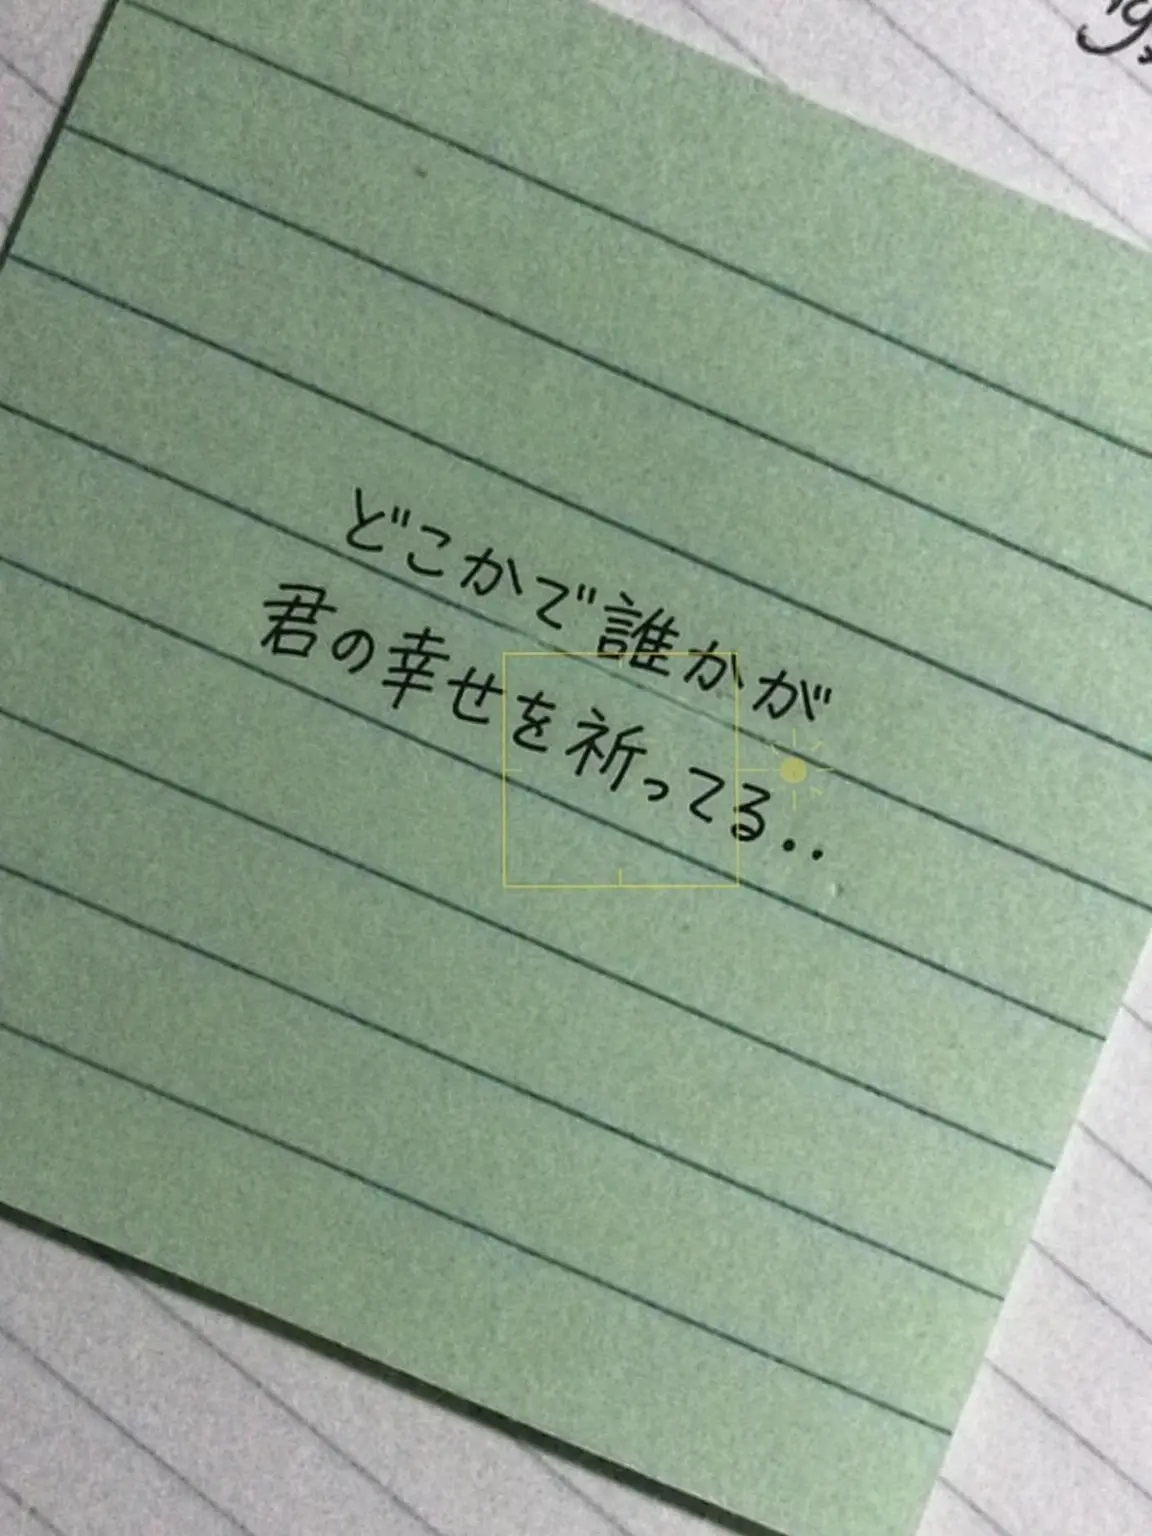 どこかで誰かが
君の幸せを祈ってる..